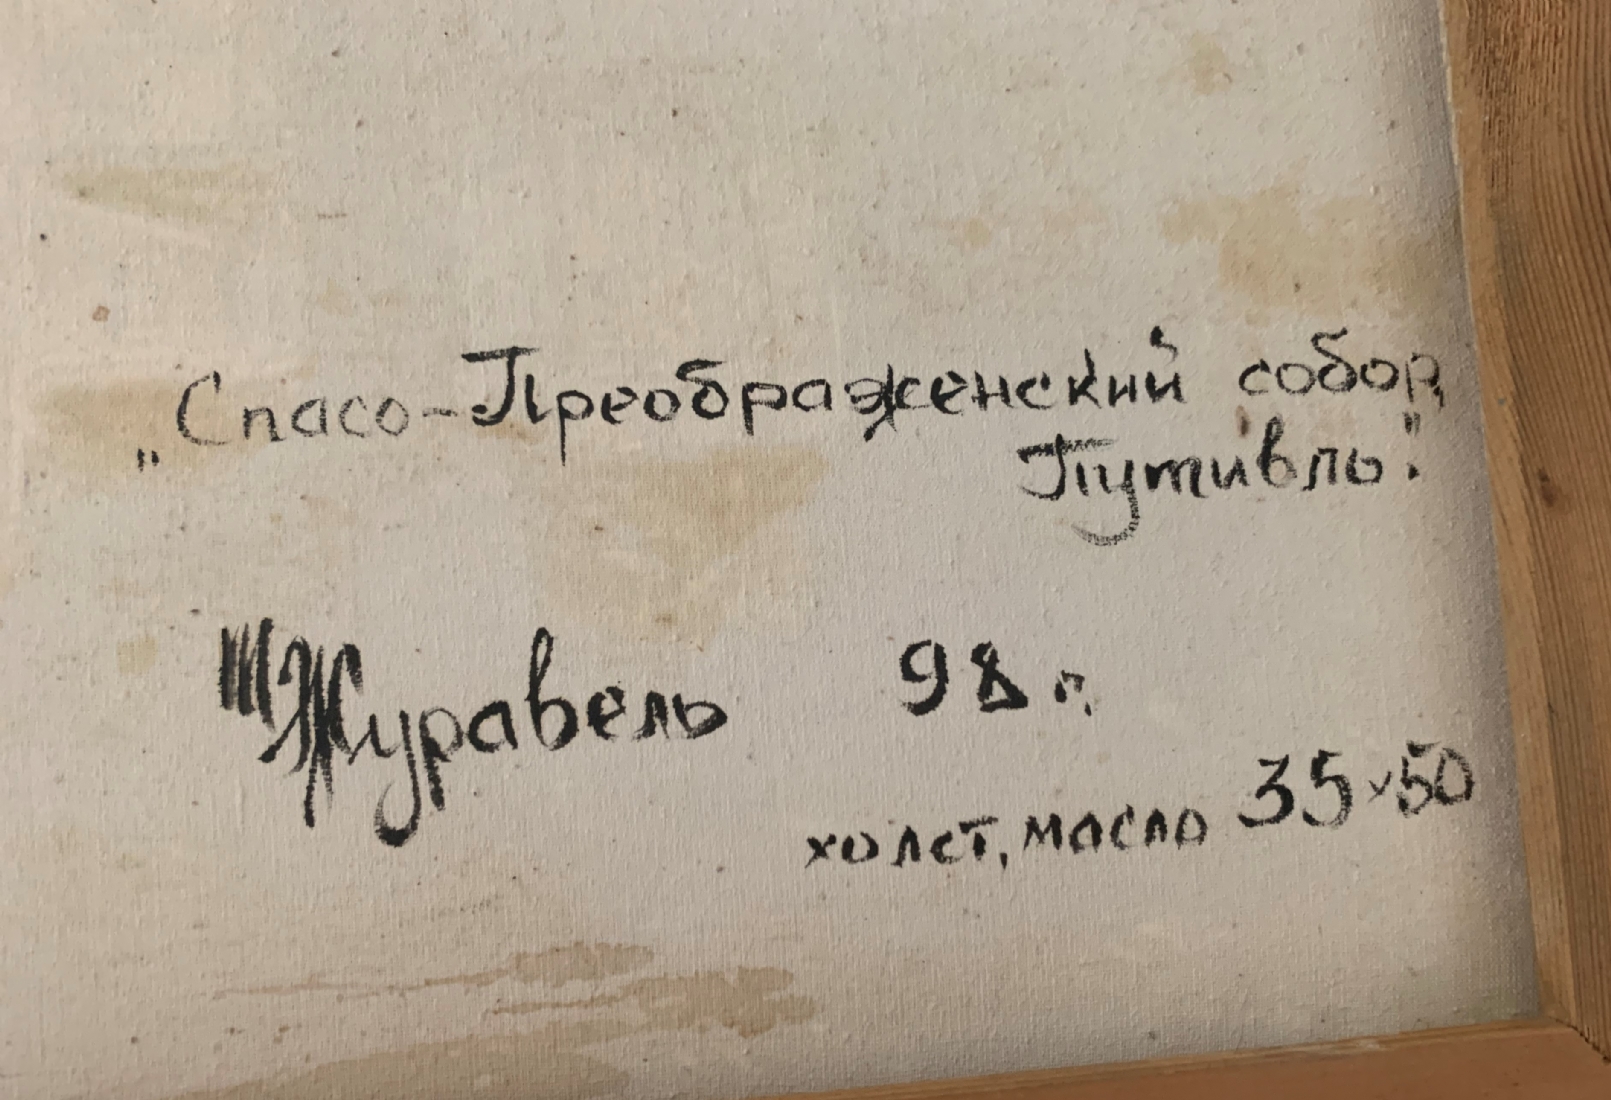 „Спасо-Преображенский собор,
Путивль".
Журавель 98 г.
холст, масло 35×50